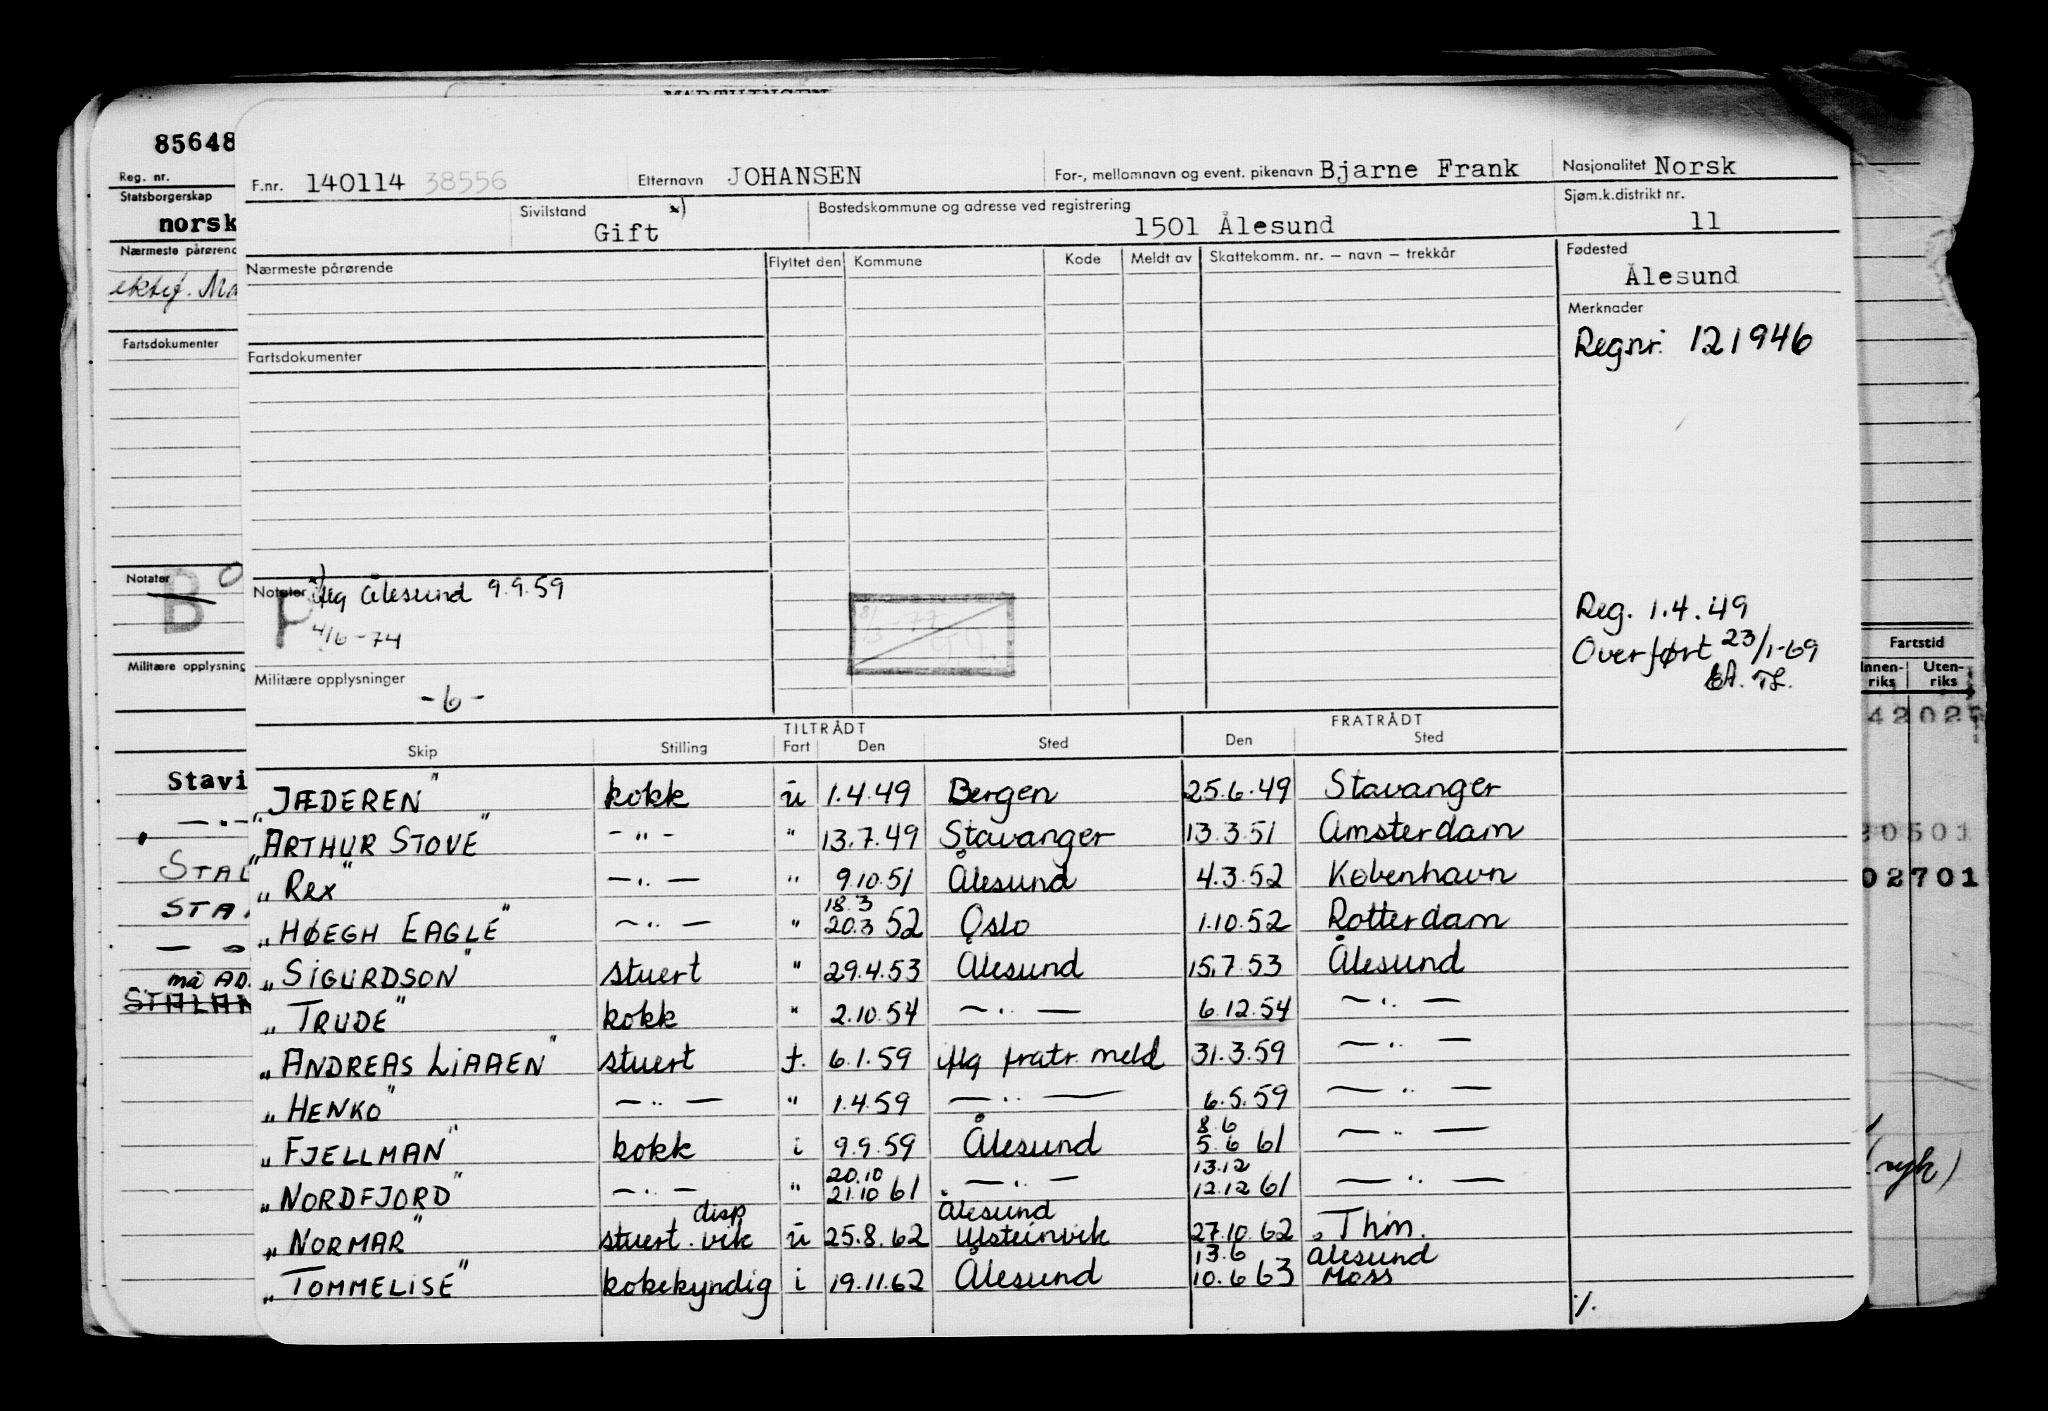 MARTHINSEN
85648
Reg. nr.
Statsborgerskap
norsk
Nærmeste pårørend
ektef. Ma
Fartsdokumenter
Notater
B
Militære opplysning
Stavi
— " —
STAL
STA
må AD.
STALAN
F.nr. 140114 38556 Etternavn JOHANSEN For-, mellomnavn og event. pikenavn Bjarne Frank Nasjonalitet Norsk
Sivilstand Gift x) Bostedskommune og adresse ved registrering 1501 Ålesund Sjøm.k.distrikt nr. 11
Nærmeste pårørende Flyttet den Kommune Kode Meldt av Skattekomm. nr. – navn – trekkår Fødested
Ålesund
Merknader
Regnr. 121946
Fartsdokumenter
Notater x) iflg Ålesund 9.9.59
P 4/6-74
Reg. 1.4.49
Overført 23/1-69
Militære opplysninger
-6-
TILTRÅDT FRATRÅDT
Skip Stilling Fart Den Sted Den Sted
"JÆDEREN" kokk u 1.4.49 Bergen 25.6.49 Stavanger
"ARTHUR STOVE" — " — " 13.7.49 Stavanger 13.3.51 Amsterdam
"REX" — " — " 9.10.51 Ålesund 4.3.52 København
"HØEGH EAGLE" — " — " 18.3 20.3 52 Oslo 1.10.52 Rotterdam
"SIGURDSON" stuert " 29.4.53 Ålesund 15.7.53 Ålesund
"TRUDE" kokk " 2.10.54 — " — 6.12.54 — " —
"ANDREAS LIAAEN" stuert f. 6.1.59 iflg fratr. meld 31.3.59 — " —
"HENKO" — " — " 1.4.59 — " — 6.5.59 — " —
"FJELLMAN" kokk i 9.9.59 Ålesund 8.6 5.6 61 — " —
"NORDFJORD" — " — " 20.10 21.10 61 — " — 13.12 12.12 61 — " —
"NORMAR" stuert disp vik u 25.8.62 Ålesund Ulsteinvik 27.10.62 Thm.
"TOMMELISE" kokekyndig i 19.11.62 Ålesund 13.6 10.6 63 Ålesund Moss
./.
Fartstid
Innenriks Utenriks
4202
20501
02701
(ryk)